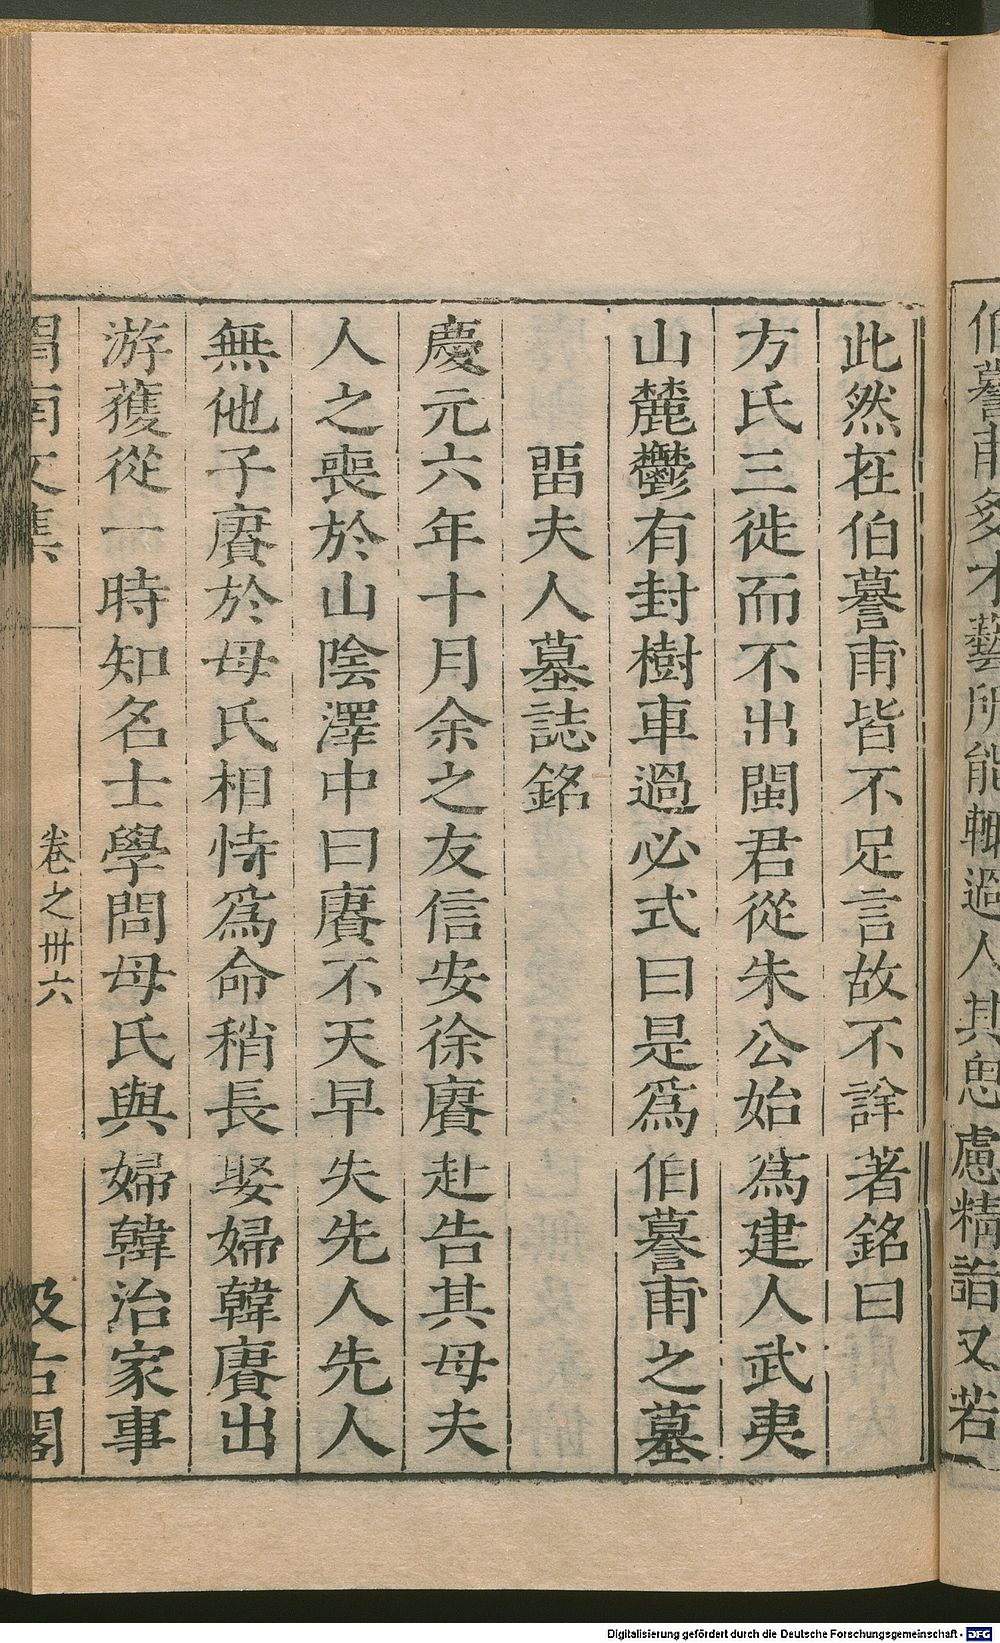 伯謩甫多才藝所能輒過人其思慮精詣又若
此然在伯謩甫皆不足言故不詳著銘曰
方氏三徙而不出閩君從朱公始爲建人武夷
山麓鬱有封樹車過必式曰是爲伯謩甫之墓
畱夫人墓誌銘
慶元六年十月余之友信安徐賡赴告其母夫
人之喪於山陰澤中曰賡不天早失先人先人
無他子賡於母氏相恃爲命稍長娶婦韓賡出
游獲從一時知名士學問母氏與婦韓治家事
渭南文集 卷之卅六 汲古閣
Digitalisierung gefördert durch die Deutsche Forschungsgemeinschaft - DFG